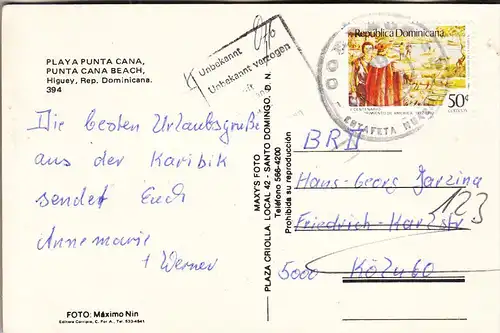 PLAYA PUNTA CANA,
PUNTA CANA BEACH,
Higuey, Rep. Dominicana.
394
Unbekannt
Unbekannt verzogen
República Dominicana
50¢
ESTAFETA
Die besten Urlaubsgrüße
aus der Karibik
sendet Euch
Annemarie
+ Werner
MAXY'S FOTO
PLAZA CRIOLLA. LOCAL 42 - SANTO DOMINGO, D. N.
Teléfono 566-4200
Prohibida su reproducción
BRD
Hans-Georg Jarzina
Friedrich-Karl-Str 123
5000 Köln 60
FOTO: Máximo Nin
Editora Corripio, C. Por A., Tel. 533-4841